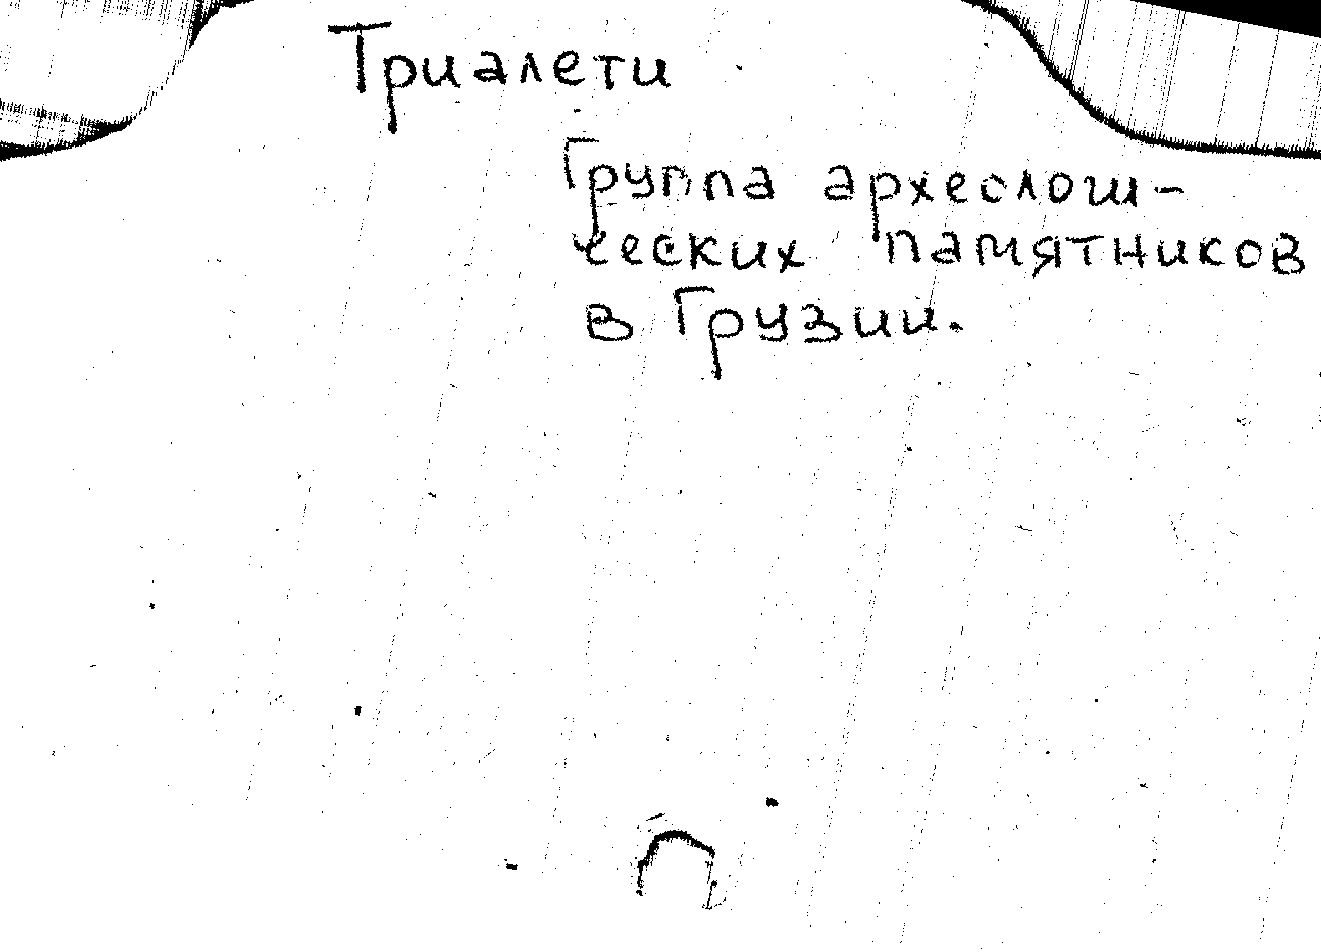 Триалети
Группа археологи-
ческих памятников
в Грузии.